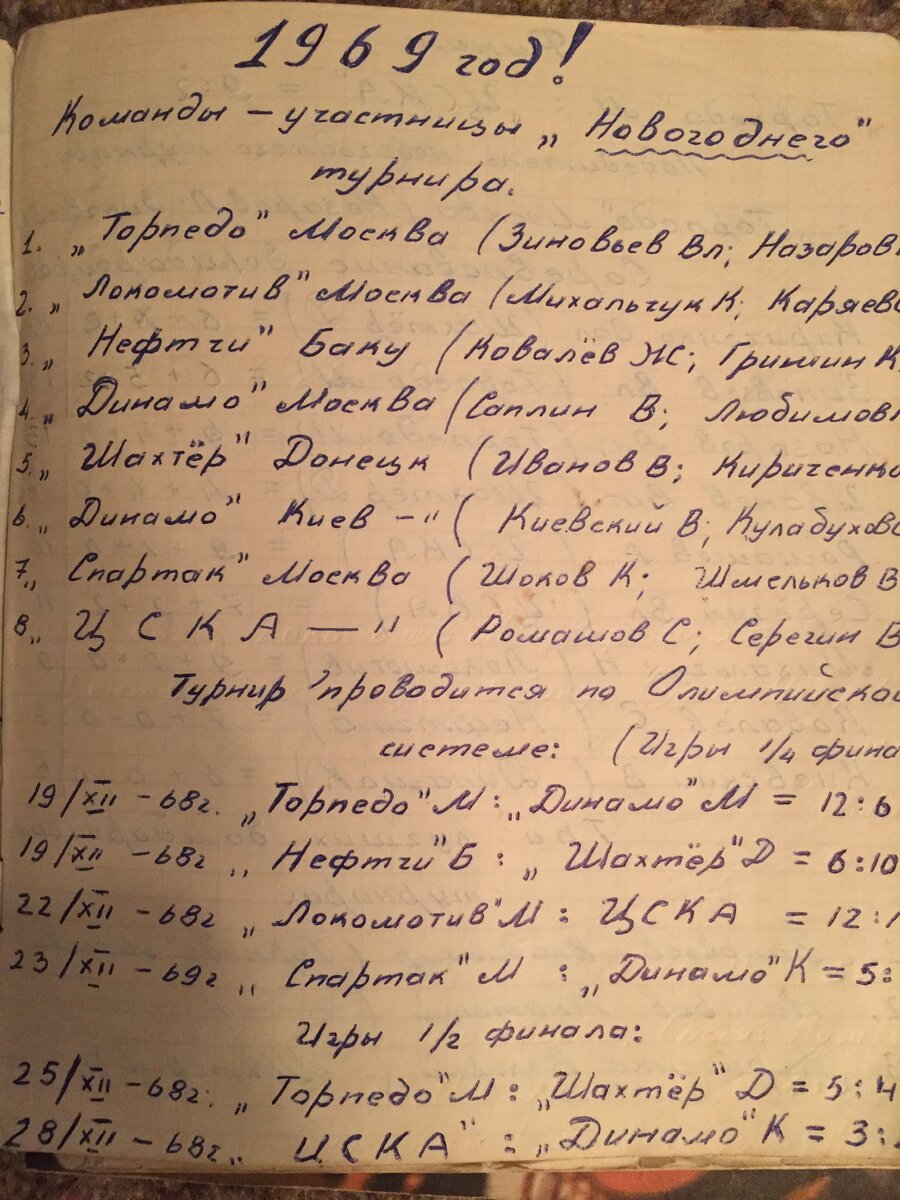 1969 год!
Команды – участницы „Новогоднего"
турнира.
1. „Торпедо" Москва (Зиновьев Вл; Назаров
2. „Локомотив" Москва (Михальчук К; Каряев
3. „Нефтчи" Баку (Ковалёв Ж; Гришин К
4. „Динамо" Москва (Саплин В; Любимов
5. „Шахтёр" Донецк (Иванов В; Кириченко
6. „Динамо" Киев –"( Киевский В; Кулабухов
7. „Спартак" Москва (Шоков К; Шмельков В
8. „ЦСКА —" (Ромашов С; Серегин В
Турнир проводится по Олимпийской
системе: (Игры 1/4 фина
19/XII – 68г. „Торпедо" М : „Динамо" М = 12:6
19/XII – 68г „Нефтчи" Б : „Шахтёр" Д = 6:10
22/XII – 68г „Локомотив" М : ЦСКА = 12:
23/XII – 69г „Спартак" М : „Динамо" К = 5:
Игры 1/2 финала:
25/XII – 68г. „Торпедо" М : „Шахтёр" Д = 5:4
28/XII – 68г „ЦСКА" : „Динамо" К = 3: